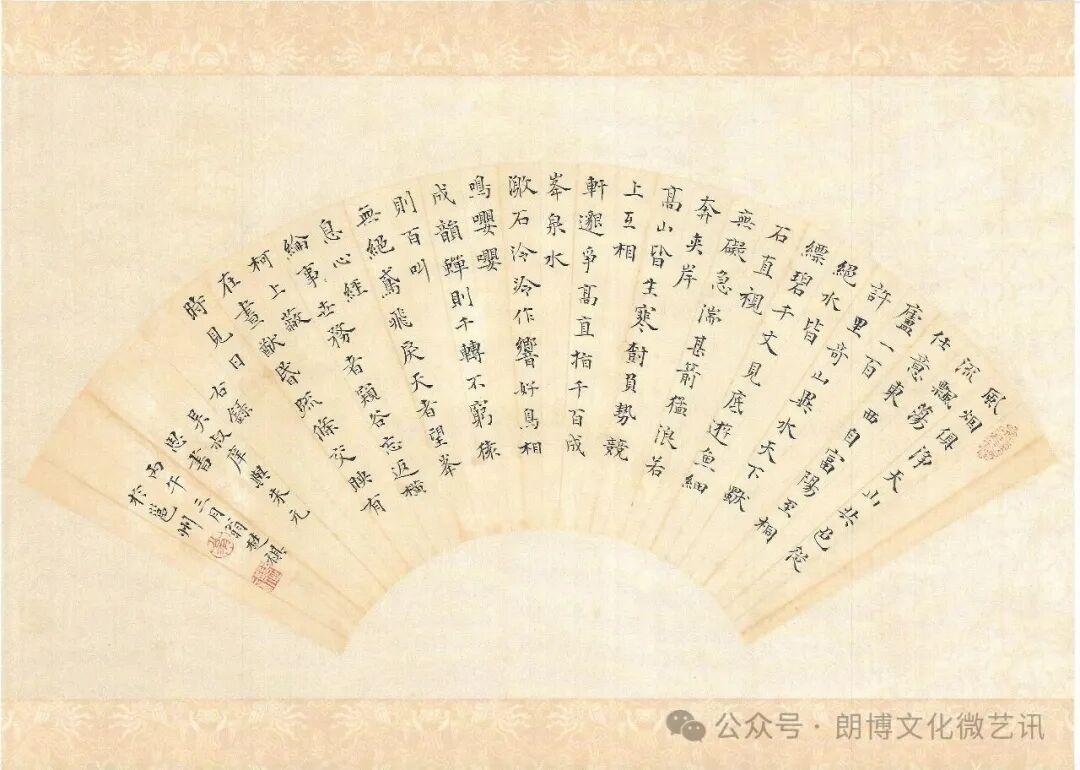 風烟俱淨天山共色從
流飄蕩
任意東西自富陽至桐
廬一百
許里奇山異水天下獨
絕水皆
縹碧千丈見底遊魚細
石直視
無礙急湍甚箭猛浪若
奔夾岸
高山皆生寒樹負勢競
上互相
軒邈爭高直指千百成
峯泉水
激石泠泠作響好鳥相
鳴嚶嚶
成韻蟬則千轉不窮猿
則百叫
無絕鳶飛戾天者望峯
息心經
綸事世務者窺谷忘返橫
柯上蔽
在晝猶昏疏條交映有
時見日右錄
吳叔庠與朱元
思書
丙午三月翁楚祺
於邕州
公众号·朗博文化微艺讯